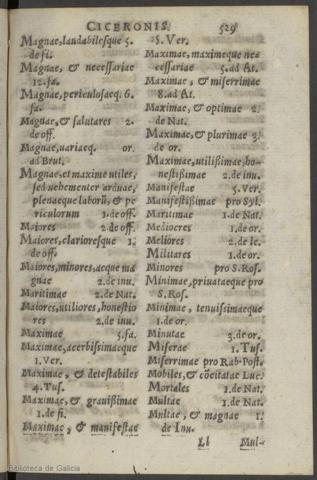 CICERONIS. 529
Magnae, laudabilesque 5.
de fi.
Magnae, & necessariae
12. fa.
Magnae, periculosaeq. 6.
fa.
Magnae, & salutares 2.
de off.
Magnae, uariaeq. or.
ad Brut.
Magnae, et maxime utiles,
sed uehementer arduae,
plenaeque laborũ, & pe
riculorum 1. de off.
Maiores 2. de off.
Maiores, clarioresque 1.
de off.
Maiores, minores, aeque ma
gnae 2. de inu.
Maritimae 2. de Nat.
Maiores, utiliores, honestio
res 2. de inu.
Maximae 5. fa.
Maximae, acerbissimaeque
1. Ver.
Maximae, & detestabiles
4. Tus.
Maximae, & grauissimae
1. de fi.
Maximae, & manifestae
5. Ver.
Maximae, maximeque ne
cessariae 5. ad At.
Maximae, & miserrimae
8. ad At.
Maximae, & optimae 2.
de Nat.
Maximae, & plurimae 3.
de or.
Maximae, utilissimae, ho-
nestissimae 2. de inu.
Manifestae 5. Ver.
Manifestissimae pro Syl.
Maritimae 1. de Nat.
Mediocres 1. de or.
Meliores 2. de le.
Militares 1. de or.
Minores pro S. Ros.
Minimae, priuataeque pro
S. Ros.
Minimae, tenuissimaeque
1. de or.
Minutae 3. de or.
Miserae 1. Tus.
Miserrimae pro Rab. Post.
Mobiles, & cõcitatae Luc.
Mortales 1. de Nat.
Multae 1. de Nat.
Multae, & magnae 1.
de Inu.
Ll Mul-
Biblioteca de Galicia